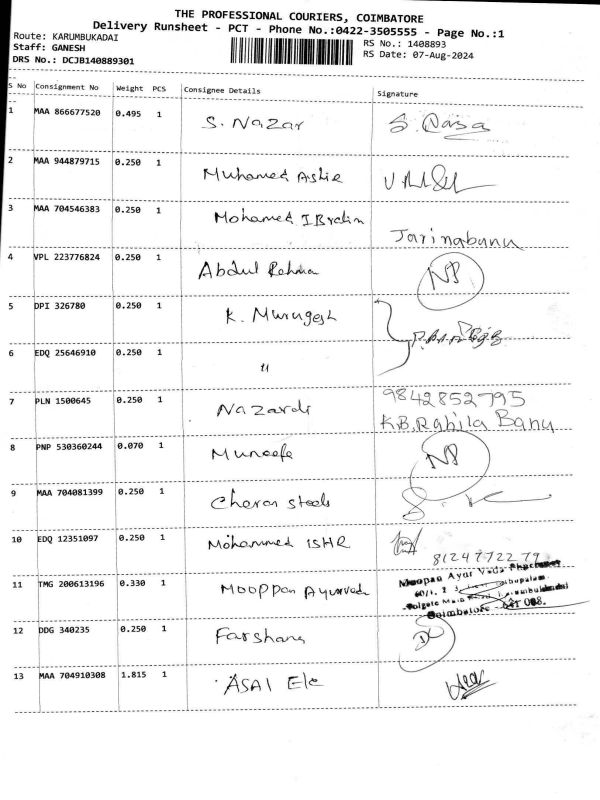 THE PROFESSIONAL COURIERS, COIMBATORE
Delivery Runsheet - PCT - Phone No.:0422-3505555 - Page No.:1
Route: KARUMBUKADAI
Staff: GANESH
DRS No.: DCJB140889301
RS No.: 1408893
RS Date: 07-Aug-2024
S No Consignment No Weight PCS Consignee Details Signature
1 MAA 866677520 0.495 1 S. Nazar
2 MAA 944879715 0.250 1 Muhamed
3 MAA 704546383 0.250 1 Mohamed Jarinabanu
4 VPL 223776824 0.250 1 Abdul NP
5 DPI 326780 0.250 1 K. Murugesh
6 EDQ 25646910 0.250 1 "
7 PLN 1500645 0.250 1 9842852795
K.B.Rahila Banu
8 PNP 530360244 0.070 1 NP
9 MAA 704081399 0.250 1 Charan steels
10 EDQ 12351097 0.250 1 Mohammed ISHR
8124772279
11 TMG 200613196 0.330 1 Mooppan Ayurveda
Moopan Ayur Veda
Coimbatore
12 DDG 340235 0.250 1 Farshana
13 MAA 704910308 1.815 1 ASAI Ele